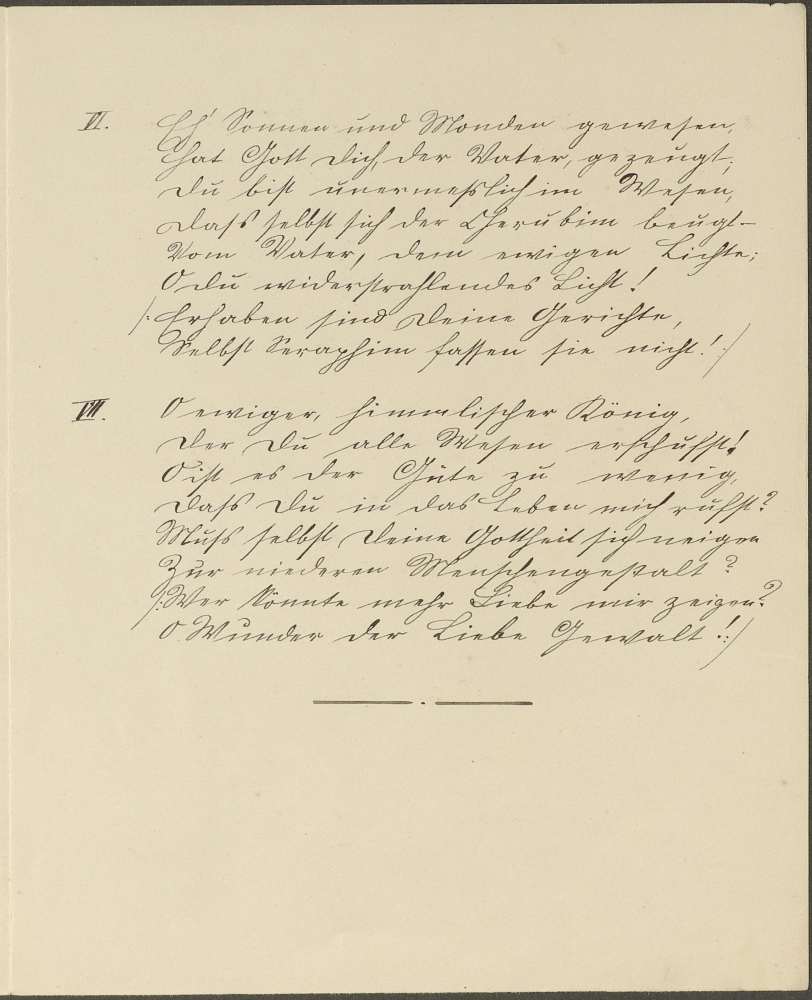 VI. Eh' Sonnen und Monden gewesen,
Hat Gott Dich, der Vater, gezeugt;
Du bist unermesslich im Wesen,
Dass selbst sich der Cherubim beugt –
Vom Vater, dem ewigen Lichte;
O du widerstrahlendes Licht!
/: Erhaben sind Deine Gerichte,
Selbst Seraphim fassen sie nicht! :/
VII. O ewiger, himmlischer König,
Der Du alle Wesen erschufst!
O ist es der Güte zu wenig,
Dass Du in das Leben mich rufst?
Muss selbst Deine Gottheit sich neigen
Zur niederen Menschengestalt?
/: Wer könnte mehr Liebe mir zeigen?
O Wunder der Liebe Gewalt! :/